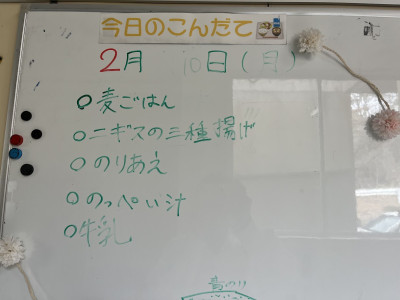 今日のこんだて
2月 10日(月)
○麦ごはん
○ニギスの三種揚げ
○のりあえ
○のっぺい汁
○牛乳